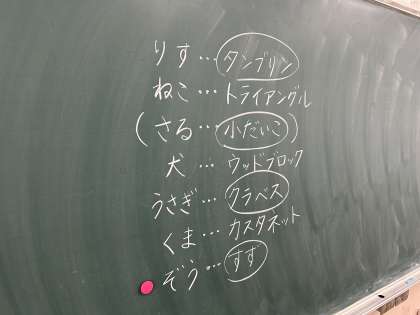 りす…タンブリン
ねこ…トライアングル
(さる…小だいこ)
犬…ウッドブロック
うさぎ…クラベス
くま…カスタネット
ぞう…すず